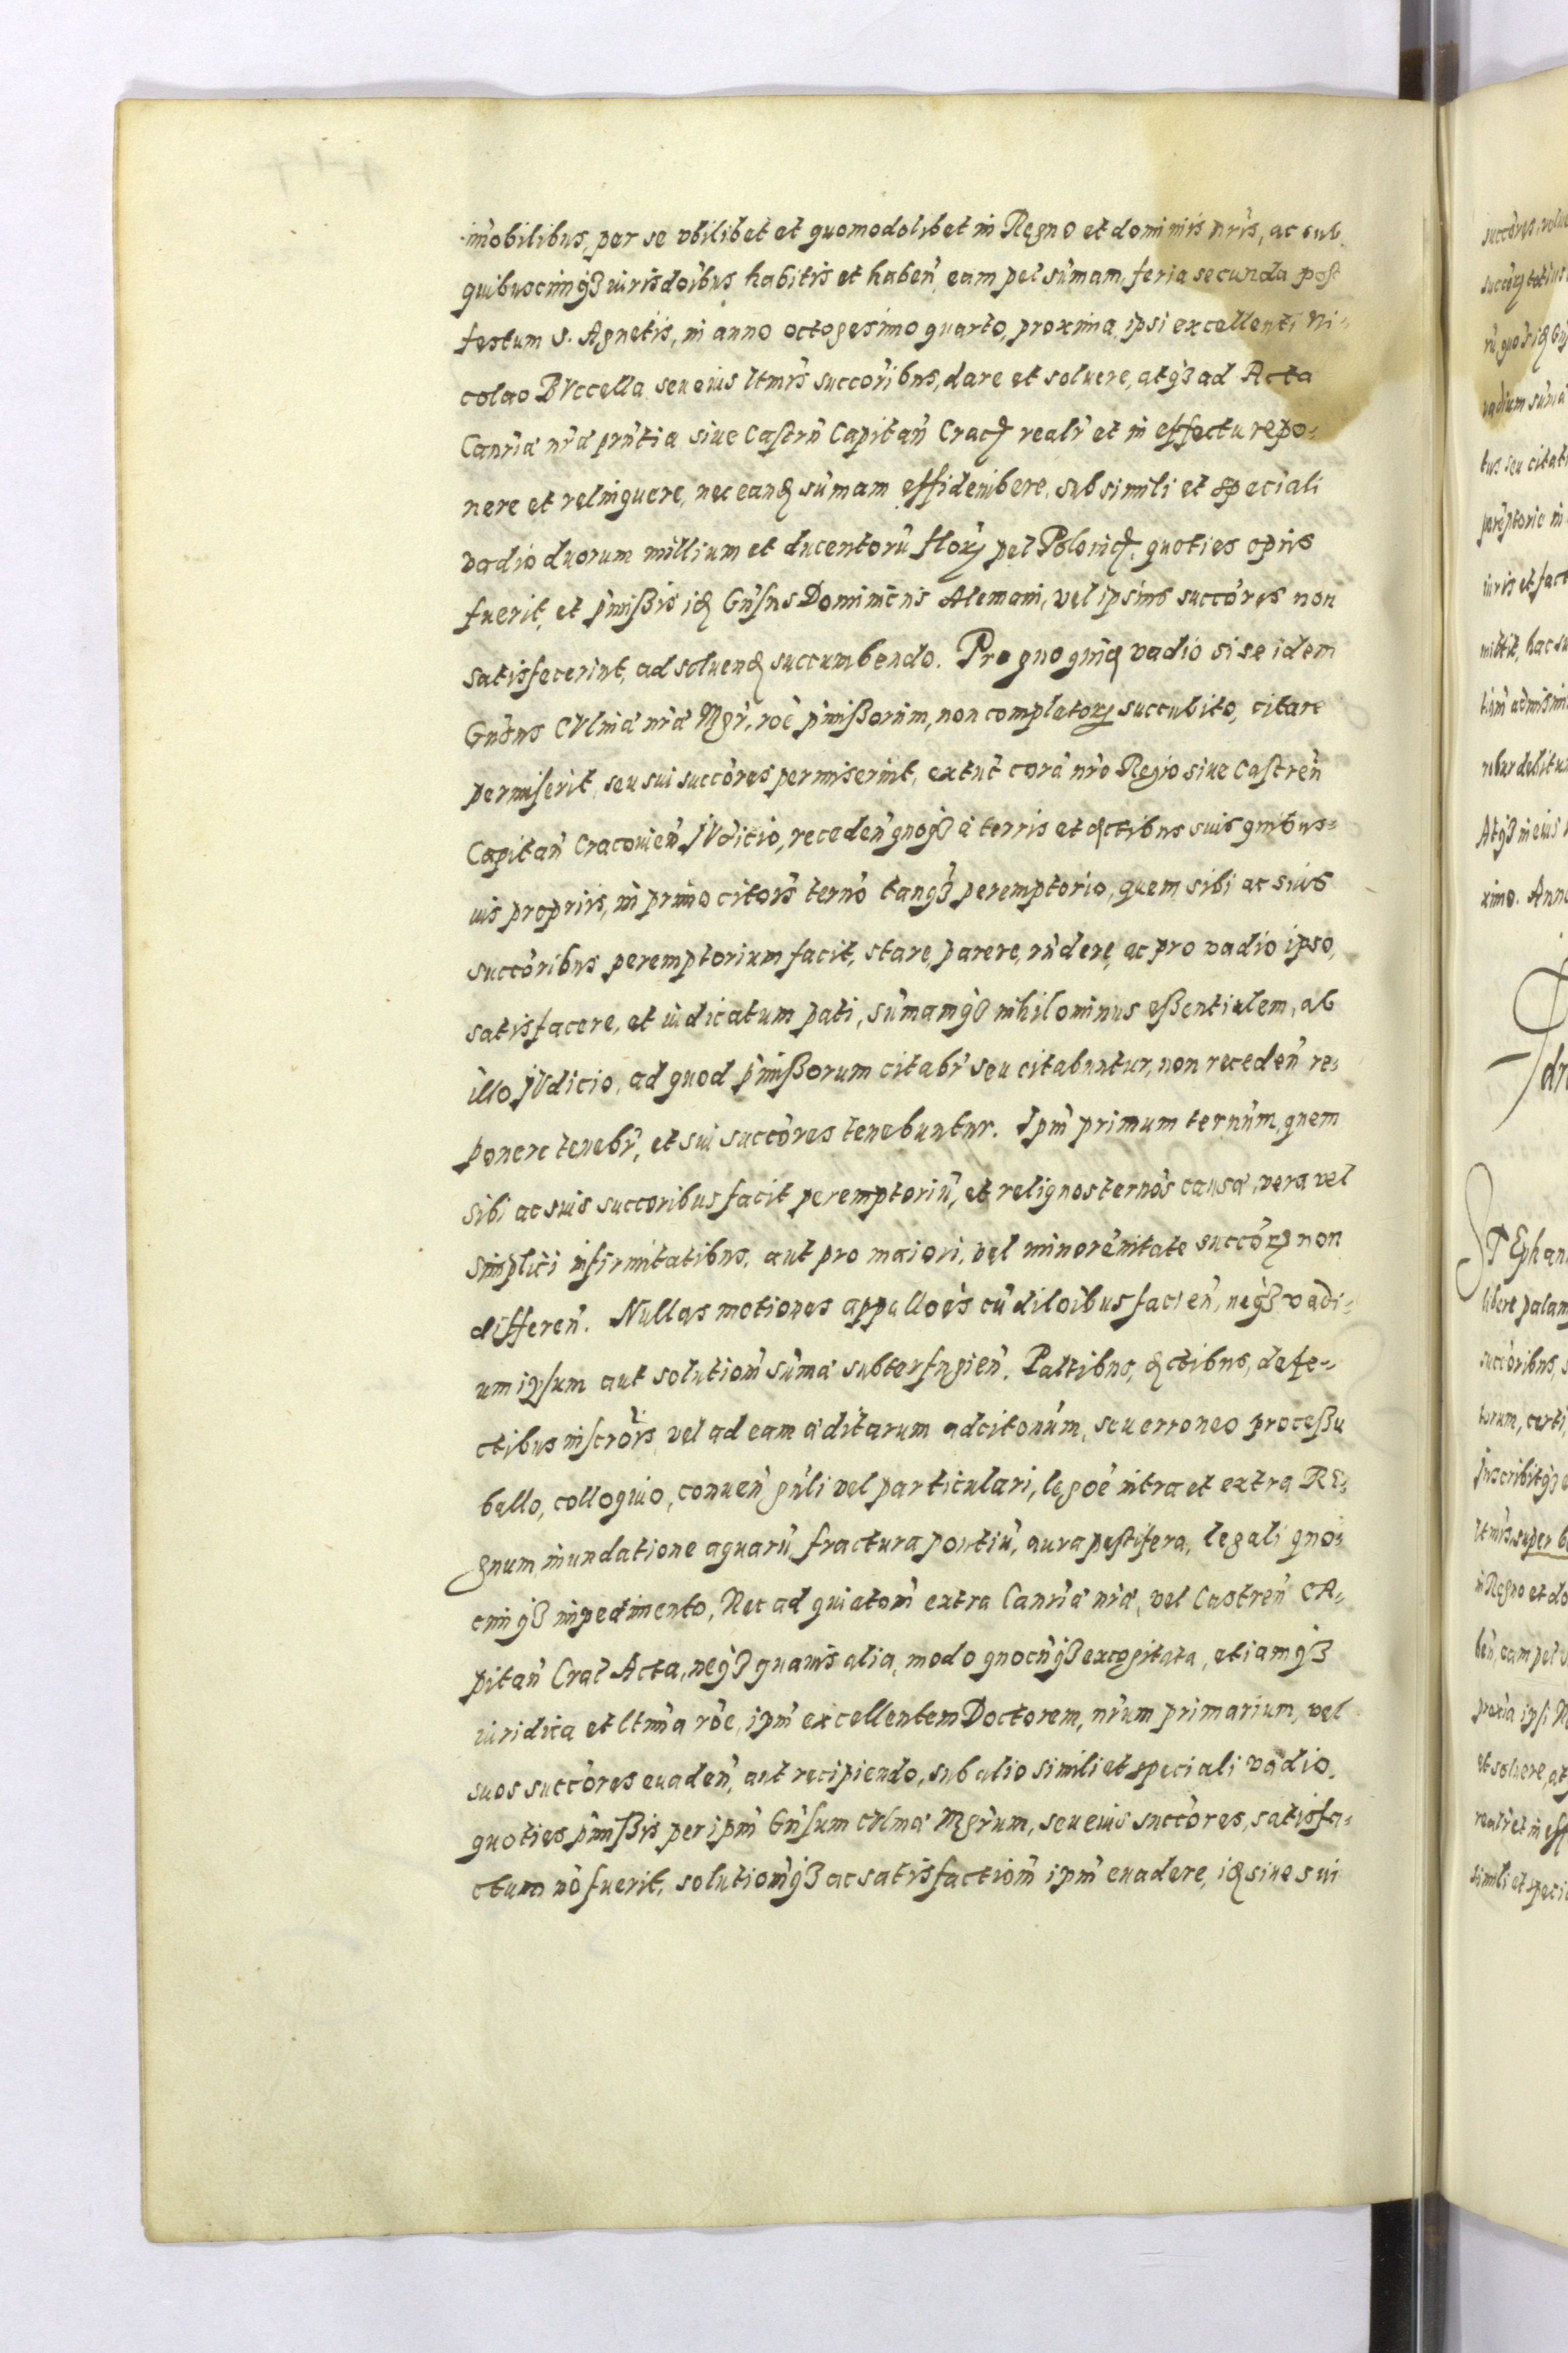 im̃obilibus, per se vbilibet et quomodolibet in Regno et dominiis nr̃is, ac sub
quibuscunqȝ iurisdõibus habitis et haben̄ eam pec̄ sum̃am, feria secunda post
festum S. Agnetis, in anno octogesimo quarto, proxima, ipsi excellenti Ni-
colao BVccella seu eius ltm̃is succorĩbus, dare et soluere, atqȝ ad Acta
Canr̃iæ nr̃æ prñtia siue Castrñ Capitan̄ Crac realr̃ et in effectu repo-
nere et relinquere, nec eand sum̃am effidenibere, sub simili et speciali
vadio duorum millium et ducentorũ flor pec̄ Polonic, quoties opus
fuerit, et p̃missis id Gñsus Dominicus Alemani, vel ipsius succõres non
satisfecerint, ad soluend succumbendo. Pro quo quid vadio si se idem
Gnõsus CVlinæ nr̃æ Mgr̃, rõe p̃missorum, non completor succubito, citare
permiserit, seu sui succõres permiserint, extũc corã nr̃o Regio siue Castren̄
Capitan̄ Cracouien̄ JVdicio, receden̄ quoqȝ à terris et dctibus suis quibus-
uis propriis, in primo citõis ternõ tanqȝ peremptorio, quem sibi ac suis
succõribus peremptorium facit, stare, parere, rñdere, ac pro vadio ipso,
satisfacere, et iudicatum pati, sum̃amqȝ nihilominus essentialem, ab
illo JVdicio, ad quod p̃missorum citabr̃ seu citabuntur, non receden̄ re-
ponere tenebr̃, et sui succõres tenebuntur. Ipm̃ primum ternũm, quem
sibi ac suis succoribus facit peremptoriũ, et reliquos ternõs causa, vera vel
simplici infirmitatibus, aut pro maiori, vel minorẽnitate succõr non
differen̄. Nullas motiones appellões cũ dilõibus facien̄, neqȝ vadi-
um ipsum aut solutioñ sum̃æ subterfugien̄. Paltibus, dctibus, defe-
ctibus inscrõis, vel ad eam æditarum adcitonũm, seu erroneo processu
bello, colloquio, conuen̄ gñli vel particulari, legõe intra et extra RE-
gnum, inundatione aquarũ, fractura pontiũ, aura pestifera, legali quo-
cunqȝ impedimento, Nec ad quietoñ extra Canr̃iæ nr̃æ, vel Castren̄ CA-
pitan̄ Crac̄ Acta, neqȝ quauis alia, modo quocũqȝ excogitata, etiamqȝ
iuridica et ltm̃a rõe, ipm̃ excellentem Doctorem, nr̃um primarium, vel
suos succõres euaden̄, aut recipiendo, sub alio simili et speciali vadio,
quoties p̃missis per ipm̃ Gñsum cVlinæ Mgr̃um, seu eius succõres, satisfa-
ctum nõ fuerit, solutioñqȝ ac satisfactioñ ipm̃ euadere, id siue sui